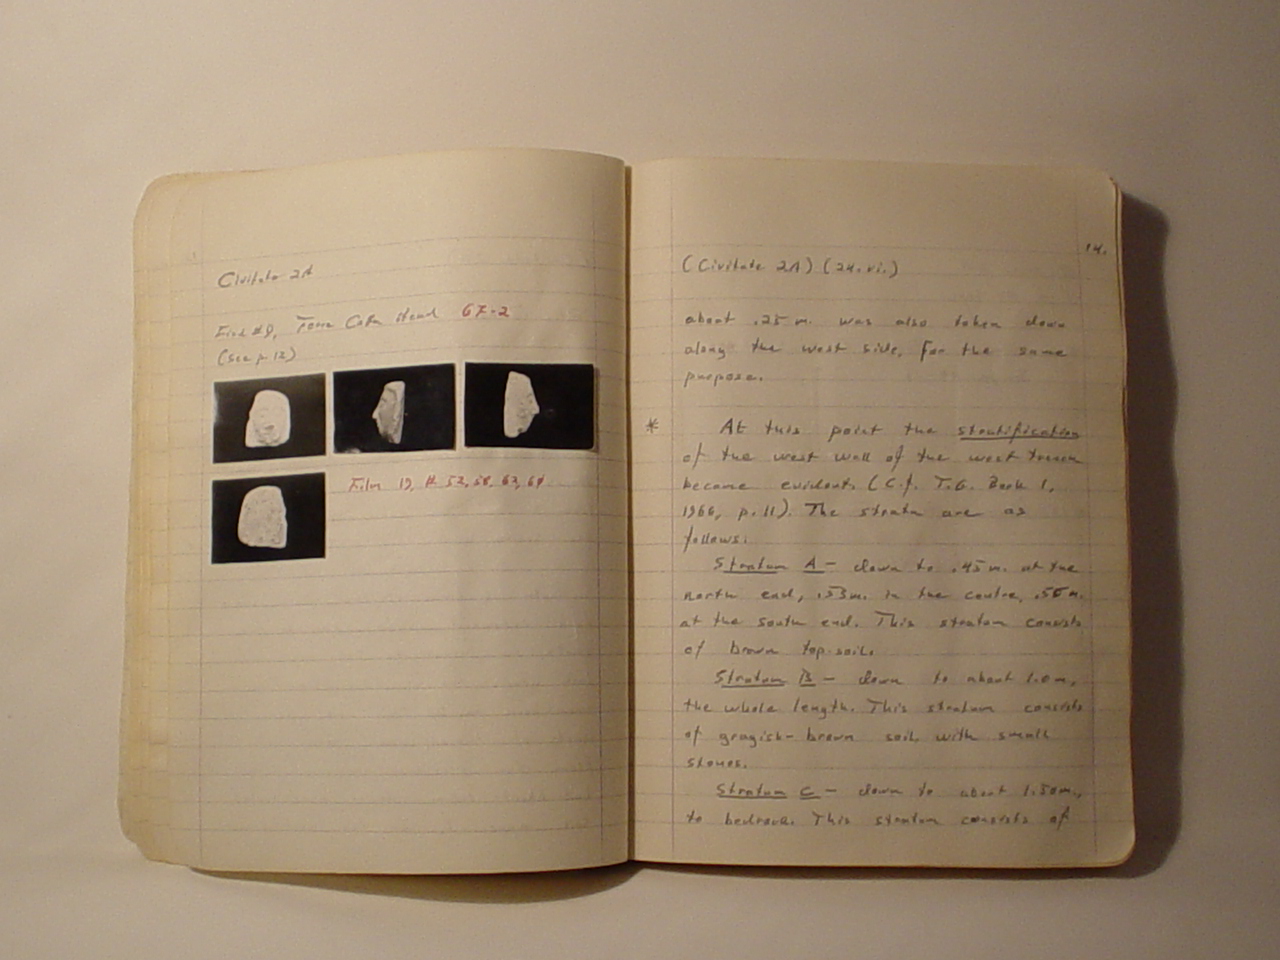 Civitate 2A
Find #9, Terra Cotta Head 67-2
(see p. 12)
Film 19, # 52, 58, 63, 64
14.
(Civitate 2A) (24.vi.)
about .25 m. was also taken down
along the west side, for the same
purpose.
* At this point the stratification
of the west wall of the west trench
became evident. (C.f. T.G. Book 1,
1966, p. 11). The strata are as
follows:
Stratum A - down to .45 m. at the
north end, .53 m. in the centre, .50 m.
at the south end. This stratum consists
of brown top-soil.
Stratum B - down to about 1.0 m,
the whole length. This stratum consists
of grayish-brown soil, with small
stones.
Stratum C - down to about 1.50 m.,
to bedrock. This stratum consists of